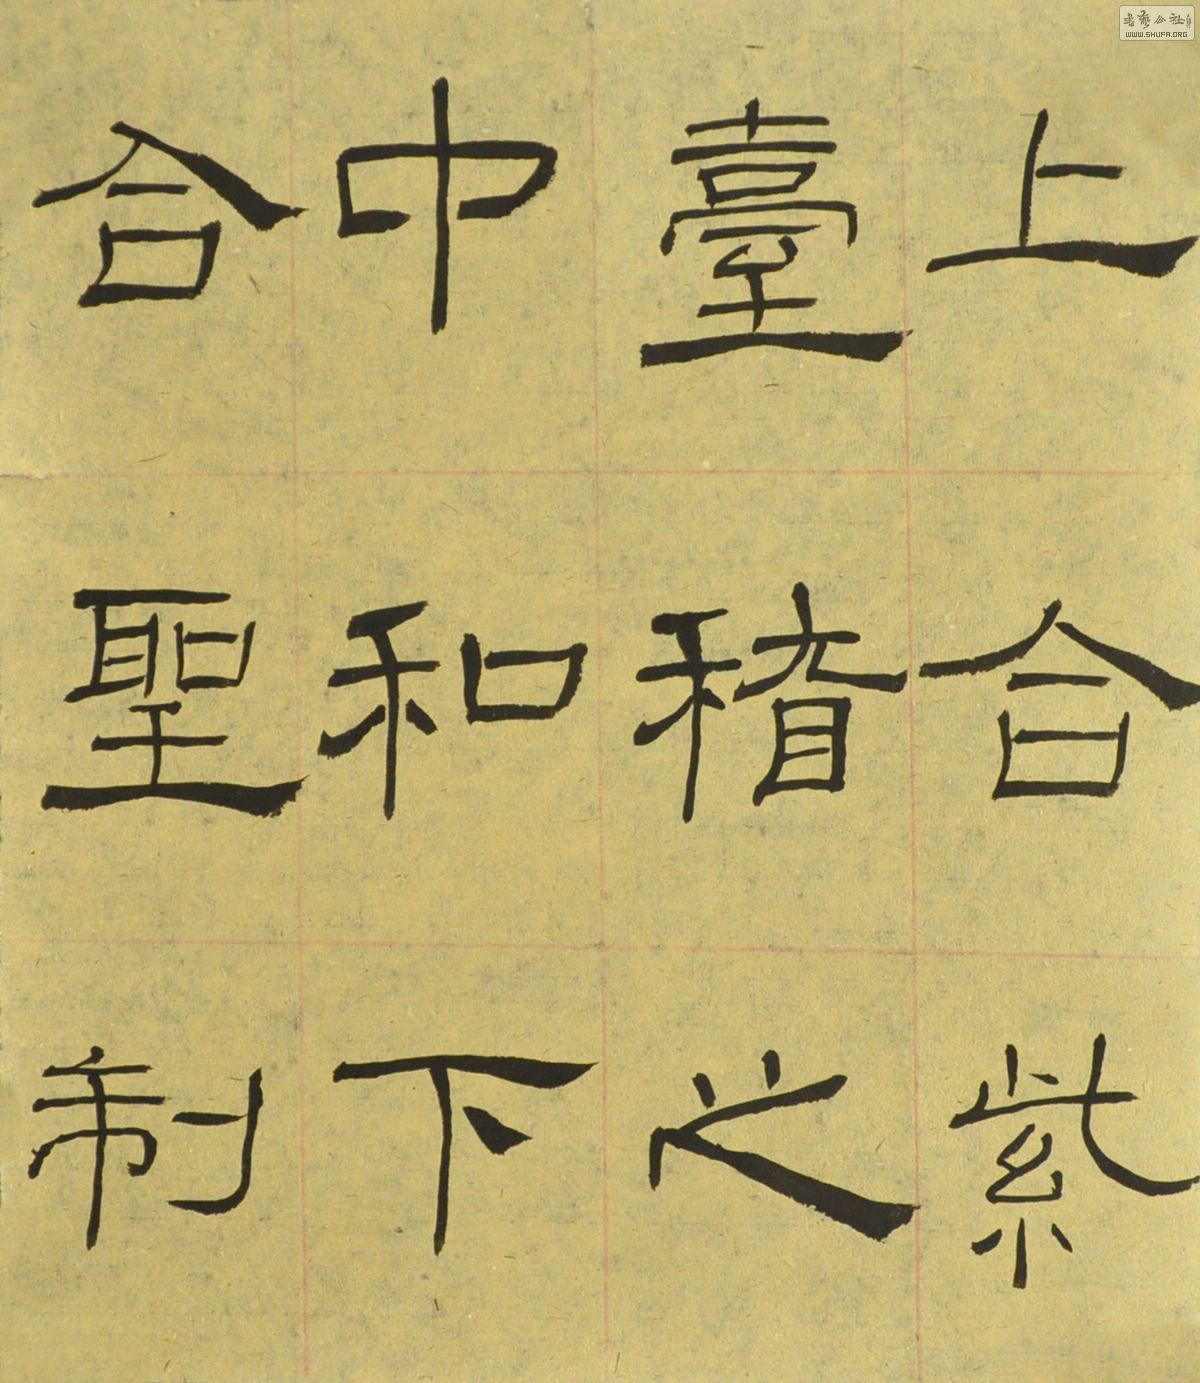 上合紫
臺稽之
中和下
合聖制
书艺公社
WWW.SHUFA.ORG